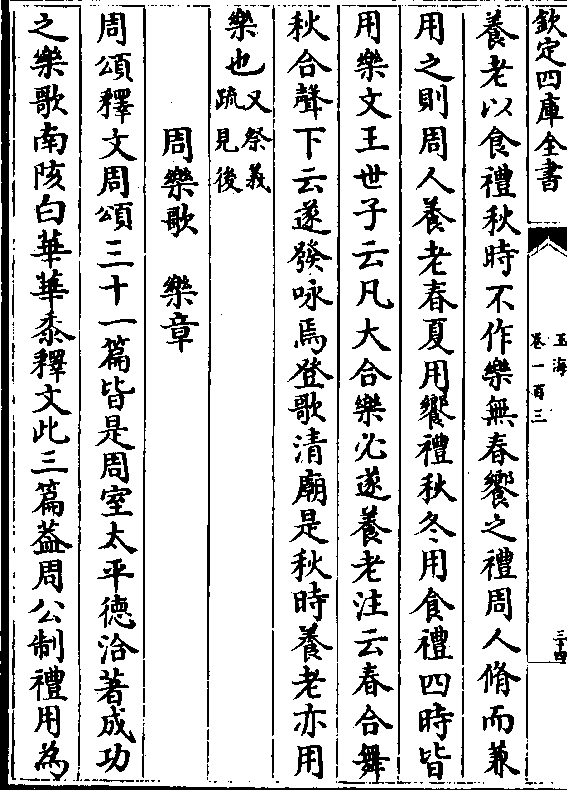 欽定四庫全書
玉海
卷一百三
三十四
養老以食禮秋時不作樂無春饗之禮周人脩而兼
用之則周人養老春夏用饗禮秋冬用食禮四時皆
用樂文王世子云凡大合樂必遂養老注云春合舞
秋合聲下云遂發咏焉登歌清廟是秋時養老亦用
樂也又祭義
疏見後
周樂歌　樂章
周頌釋文周頌三十一篇皆是周室太平德洽著成功
之樂歌南陔白華華黍釋文此三篇蓋周公制禮用為